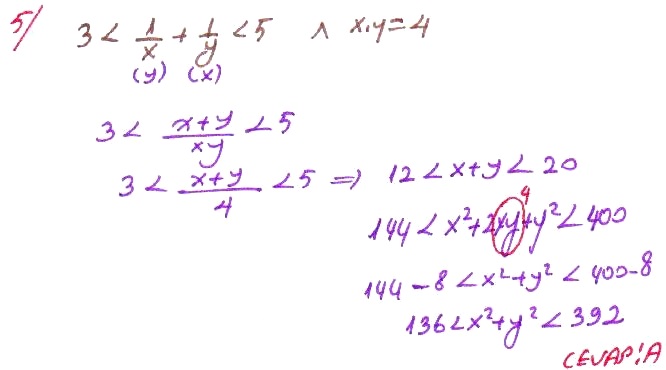 5/ 3 < 1/x + 1/y < 5 ∧ x.y = 4
(y) (x)
3 < x+y/xy < 5
3 < x+y/4 < 5 ⇒ 12 < x+y < 20
4
144 < x² + 2xy + y² < 400
144 - 8 < x² + y² < 400 - 8
136 < x² + y² < 392
CEVAP: A